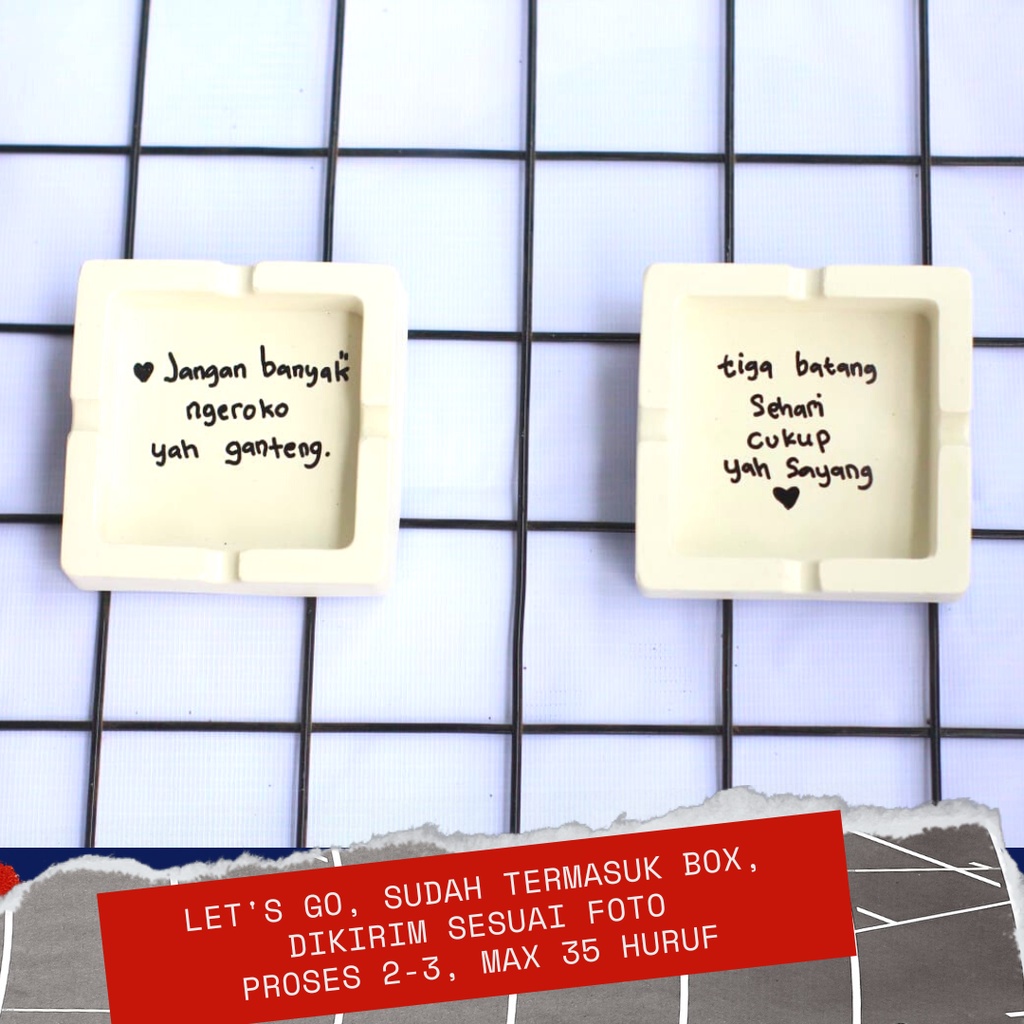 ♥ Jangan banyak"
ngeroko
yah ganteng.
tiga batang
Sehari
cukup
yah Sayang
♥
LET'S GO, SUDAH TERMASUK BOX,
DIKIRIM SESUAI FOTO
PROSES 2-3, MAX 35 HURUF